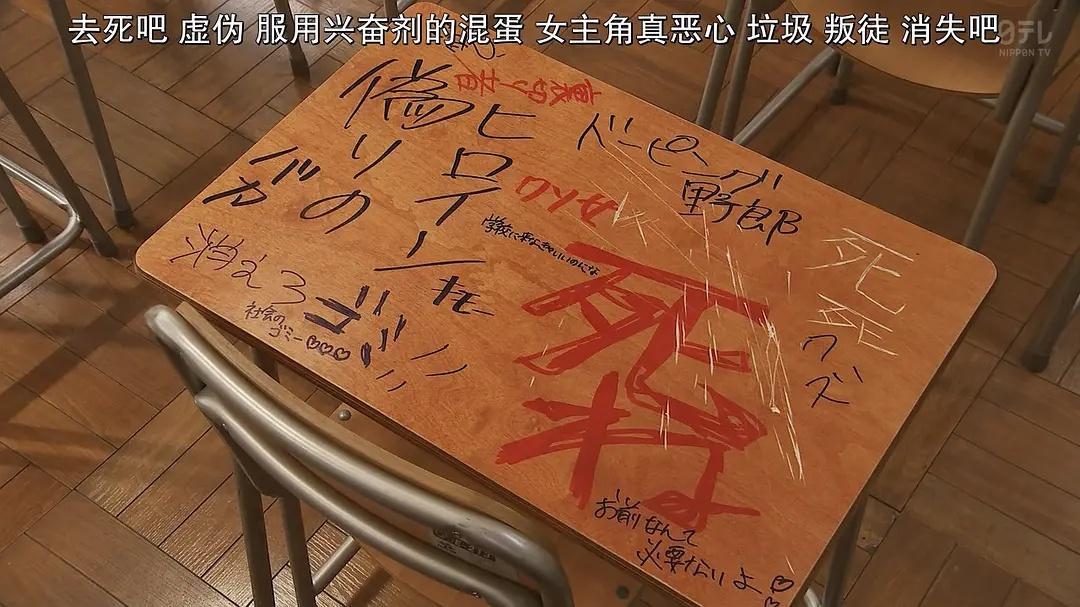 去死吧 虚伪 服用兴奋剂的混蛋 女主角真恶心 垃圾 叛徒 消失吧
日テレ
NIPPON TV
裏切り者
偽りの
ヒロイン
キモー
ドーピング
野郎
学校に来なきゃいいのにな
死ね
死
死
クズ
消えろ
社会の
ゴミー♡♡♡
ゴミ
お前なんて
必要ないよ♡